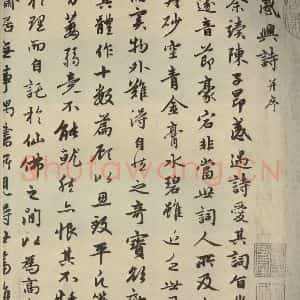 感興詩 并序
余讀陳子昂感遇詩愛其詞旨
邃音節豪宕非當世詞人所及
砂空青金膏水碧雖近乏世
而實物外難得自然之奇寶欲
其體作十數篇顧以思致平凡
萎弱竟不能就然亦恨其不
於理而自託於仙佛之間以為高
居無事偶書所見得二十篇
Shufawang.CN